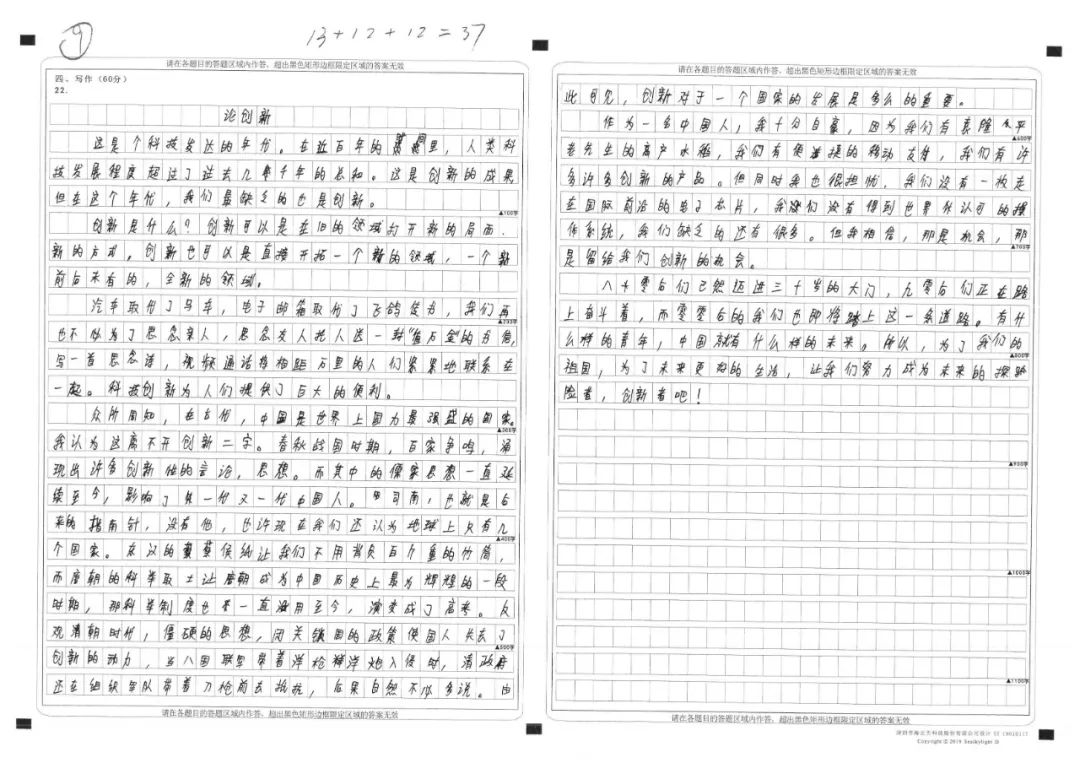 ⑨
13+12+12=37
请在各题目的答题区域内作答、超出黑色矩形边框限定区域的答案无效
四、写作（60分）
22.
论创新
这是个科技发达的年代。在近百年的里，人类科
技发展程度超过了过去几千年的总和。这是创新的成果
但在这个年代，我们最缺乏的也是创新。
▲100字
创新是什么？创新可以是在旧的领域打开新的局面、
新的方式，创新也可以是直接开拓一个新的领域，一个新
前后未有的，全新的领域。
汽车取代了马车，电子邮箱取代了飞鸽传书，我们再
▲200字
也不似为了思念亲人，思念友人托人送一封“值万金”的书信，
写一首思念诗，视频通话将相距万里的人们紧紧地联系在
一起。科技创新为人们提供了巨大的便利。
众所周知，在古代，中国是世界上国力最强盛的国家。
▲300字
我认为这离不开创新二字。春秋战国时期，百家争鸣，涌
现出许多创新性的言论，思想。而其中的儒家思想一直延
续至今，影响了一代又一代中国人。司南，也就是后
来的指南针，没有他，也许现在我们还认为地球上只有几
▲400字
个国家。东汉的蔡侯纸让我们不用背负百斤重的竹简，
而唐朝的科举取士让唐朝成为中国历史上最为辉煌的一段
时期，那科举制度也一直沿用至今，演变成了高考。反
观清朝时代，僵硬的思想，闭关锁国的政策使国人失去了
▲500字
创新的动力，当八国联军带着洋枪洋炮入侵时，清政府
还在组织军队带着刀枪前去抵抗，后果自然不必多说。由
请在各题目的答题区域内作答、超出黑色矩形边框限定区域的答案无效
请在各题目的答题区域内作答、超出黑色矩形边框限定区域的答案无效
此可见，创新对于一个国家的发展是多么的重要。
作为一名中国人，我十分自豪，因为我们有袁隆平
▲600字
老先生的高产水稻，我们有便捷的移动支付，我们有许
多许多创新的产品。但同时我也很担忧，我们没有一枚走
在国际前沿的电子芯片，我们没有得到世界所认可的操
作系统，我们缺乏的还有很多。但我相信，那是机会，那
▲700字
是留给我们创新的机会。
八十零后们已然迈进三十岁的大门，九零后们正在路
上奋斗着，而零零后的我们也即将踏上这一条道路。有什
么样的青年，中国就有什么样的未来。所以，为了我们的
▲800字
祖国，为了未来更好的生活，让我们努力成为未来的探
险者，创新者吧！
▲900字
▲1000字
▲1100字
请在各题目的答题区域内作答、超出黑色矩形边框限定区域的答案无效